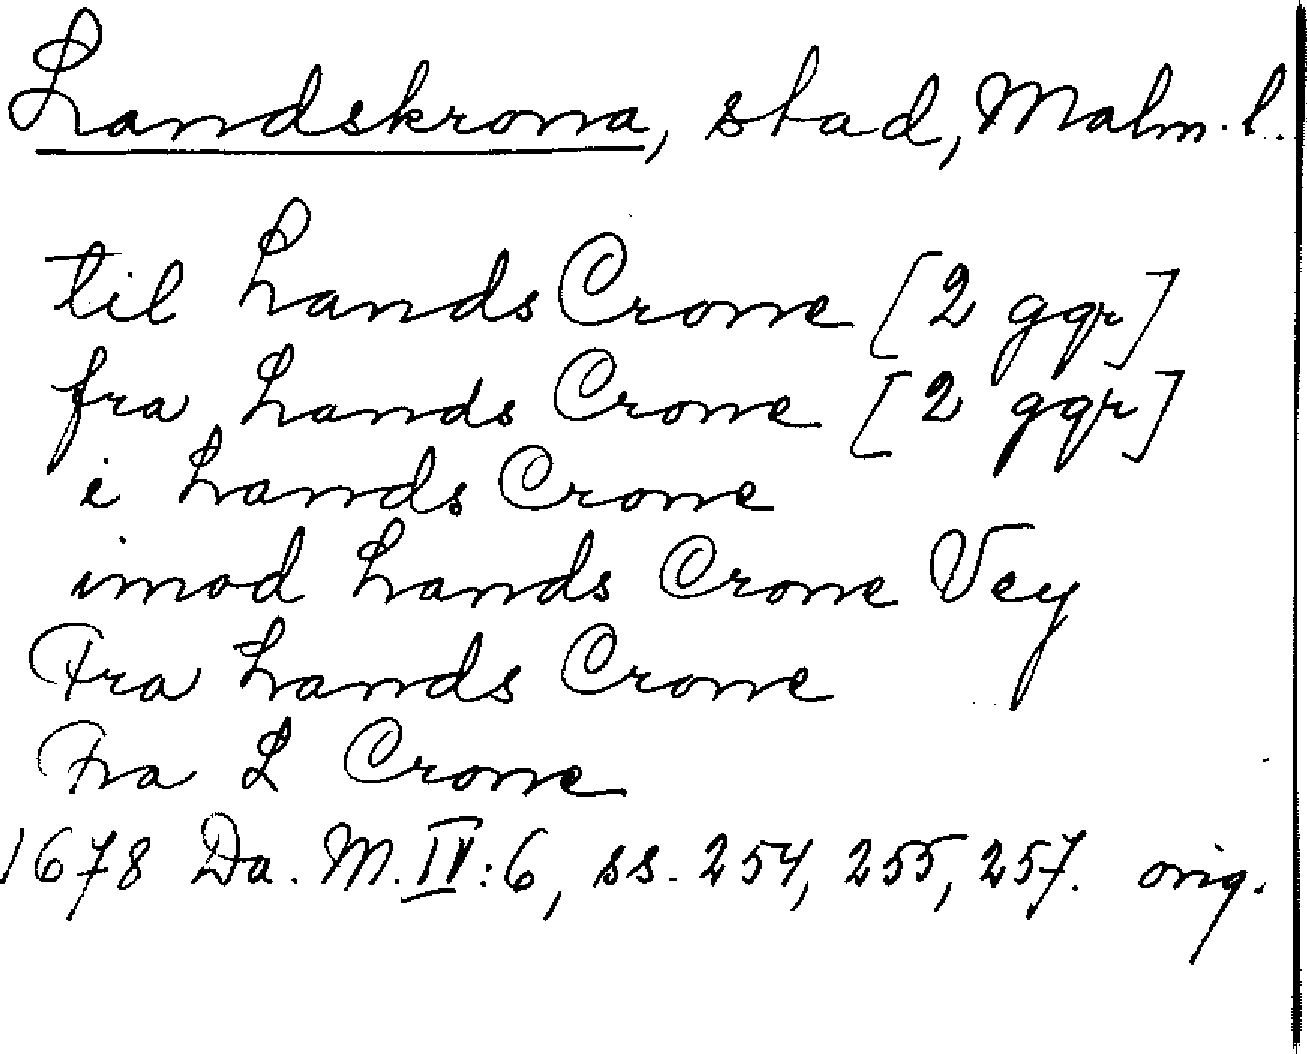 Landskrona, stad, Malm. l.
til Lands Crone [2 ggr]
fra Lands Crone [2 ggr]
i Lands Crone
imod Lands Crone Vey
Fra Lands Crone
Fra L Crone
1678 Da. M. IV:6, ss. 254, 255, 257. orig.